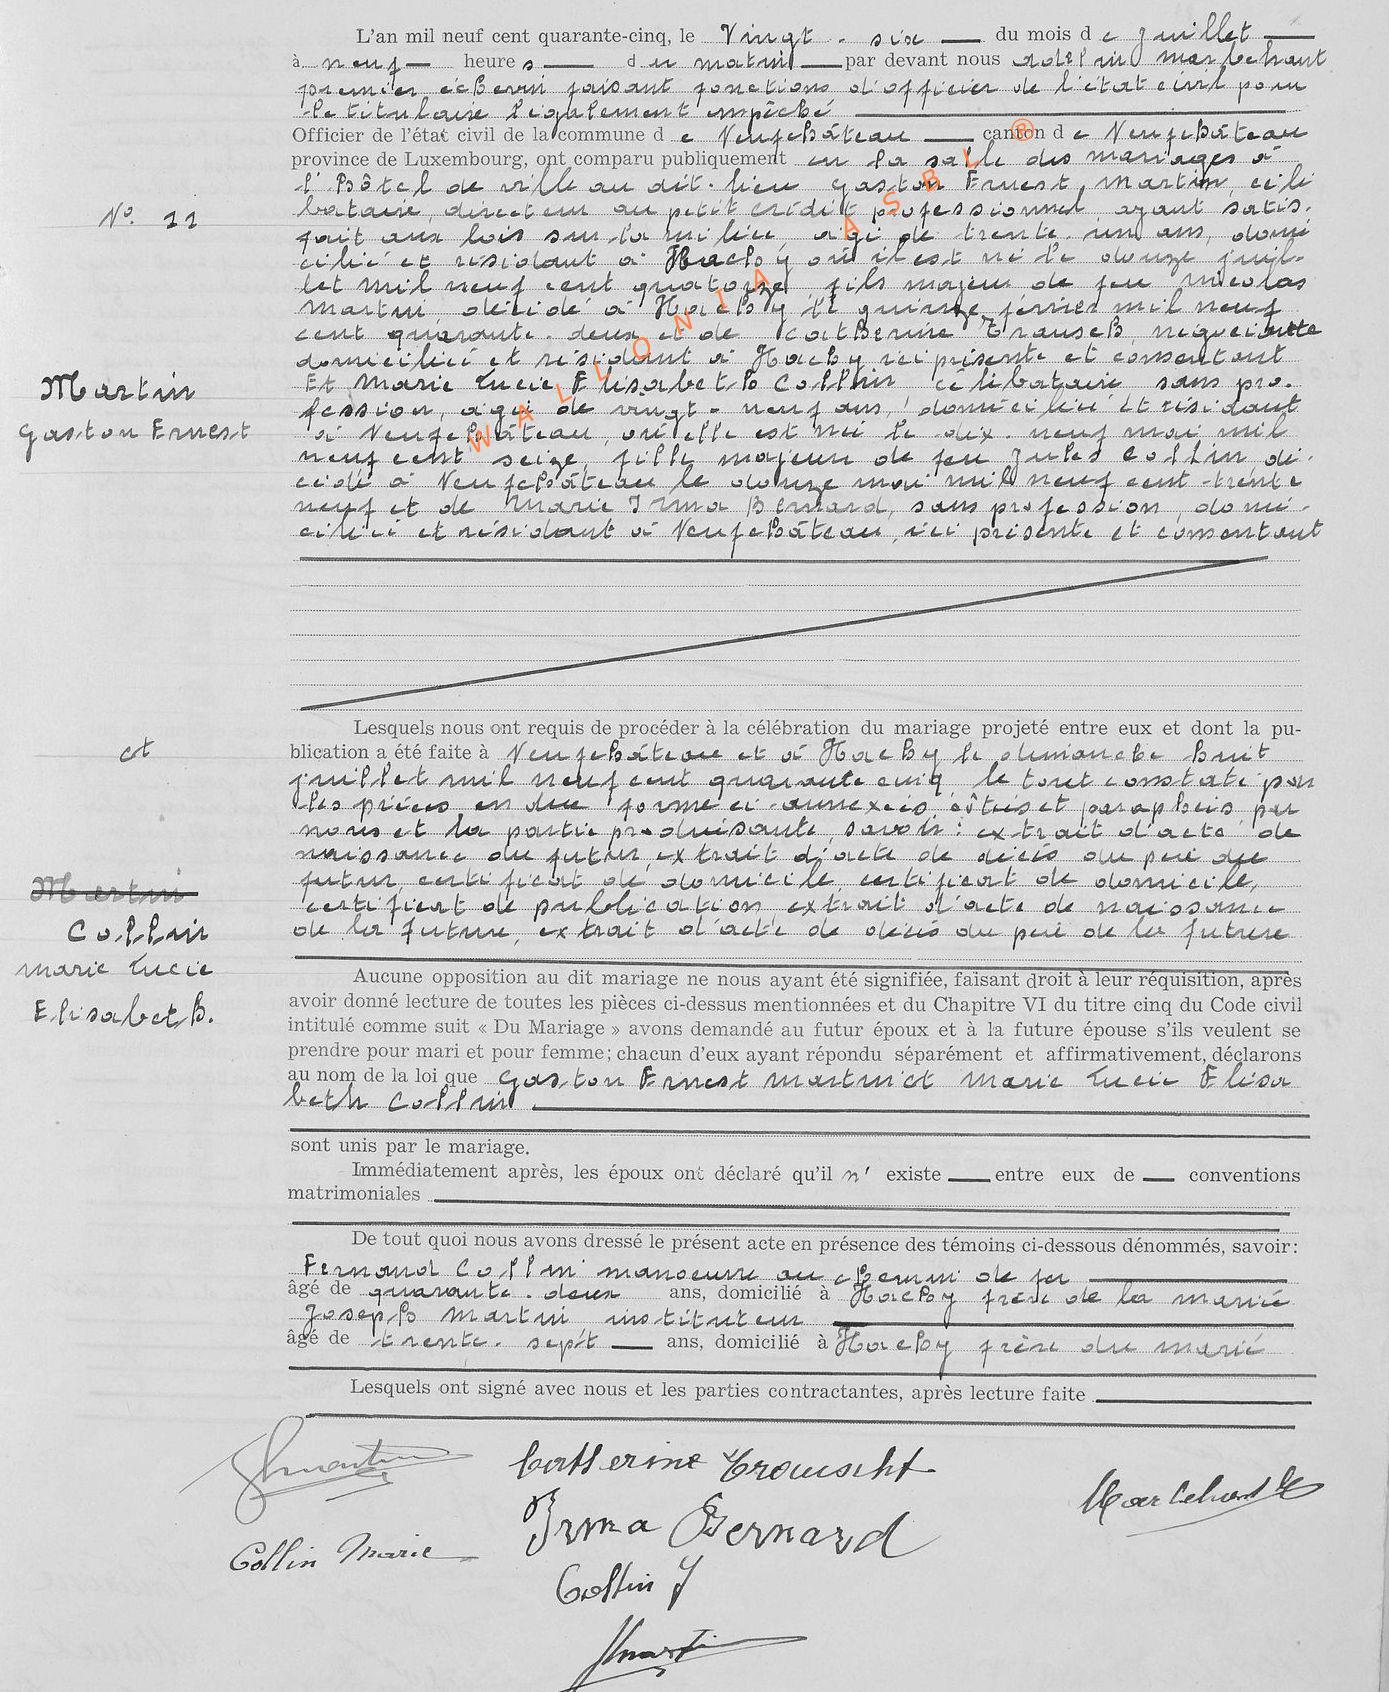 L'an mil neuf cent quarante-cinq, le Vingt-six du mois de Juillet
à neuf heures du matin par devant nous Adelin Marbehant
premier échevin faisant fonctions d'officier de l'état civil pour
le titulaire légalement empêché
Officier de l'état civil de la commune de Neufchâteau canton de Neufchâteau
province de Luxembourg, ont comparu publiquement en la salle des mariages à
l'hôtel de ville au dit-lieu Gaston Ernest Martin, céli
bataire, directeur au petit crédit professionnel, ayant satis-
fait aux lois sur la milice, âgé de trente-un ans, domi
cilié et résidant à Hachy où il est né le douze juil-
let mil neuf cent quatorze, fils majeur de feu Nicolas
Martin, décédé à Hachy le quinze février mil neuf
cent quarante-deux et de Catherine Trausch, négociante
domiciliée et résidant à Hachy ici présente et consentant
Et Marie Lucie Elisabeth Collin célibataire sans pro-
fession, âgée de vingt-neuf ans, domiciliée et résidant
à Neufchâteau, où elle est née le dix-neuf mai mil
neuf cent seize, fille majeure de feu Jules Collin, dé-
cédé à Neufchâteau le douze mai mil neuf cent-trente
neuf et de Marie Irma Bernard, sans profession, domi-
ciliée et résidant à Neufchâteau, ici présente et consentant
WALLONIA ASBL ®
N°. 22
Martin
Gaston Ernest
et
Martin
Collin
Marie Lucie
Elisabeth.
Lesquels nous ont requis de procéder à la célébration du mariage projeté entre eux et dont la pu-
blication a été faite à Neufchâteau et à Hachy le dimanche huit
juillet mil neuf cent quarante cinq, le tout constaté par
les pièces en due forme ci-annexées, côtées et paraphées par
nous et la partie produisante, savoir: extrait d'acte de
naissance du futur, extrait d'acte de décès du père du
futur, certificat de domicile, certificat de domicile,
certificat de publication extrait d'acte de naissance
de la future, extrait d'acte de décès du père de la future
Aucune opposition au dit mariage ne nous ayant été signifiée, faisant droit à leur réquisition, après
avoir donné lecture de toutes les pièces ci-dessus mentionnées et du Chapitre VI du titre cinq du Code civil
intitulé comme suit « Du Mariage » avons demandé au futur époux et à la future épouse s'ils veulent se
prendre pour mari et pour femme; chacun d'eux ayant répondu séparément et affirmativement, déclarons
au nom de la loi que Gaston Ernest Martin et Marie Lucie Elisa
beth Collin
sont unis par le mariage.
Immédiatement après, les époux ont déclaré qu'il n' existe entre eux de conventions
matrimoniales
De tout quoi nous avons dressé le présent acte en présence des témoins ci-dessous dénommés, savoir:
Fernand Collin manoeuvre au chemin de fer
âgé de quarante-deux ans, domicilié à Hachy frère de la mariée
Joseph Martin, instituteur
âgé de trente-sept ans, domicilié à Hachy frère du marié
Lesquels ont signé avec nous et les parties contractantes, après lecture faite
Catherine Trauscht
Irma Bernard
Collin Marie
Collin F